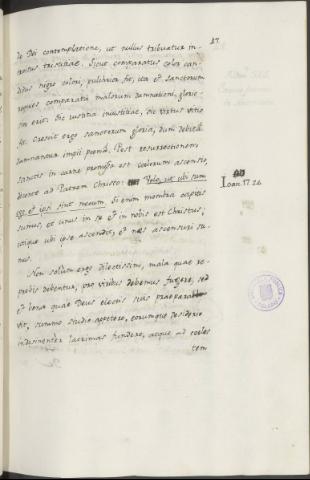 17
de Dei contemplatione, ut nullus tribuatur in-
tuitus tristitiae. Sicut comparatus color can-
didus nigro colori, pulchrior fit, ita et sanctorum
requies comparata malorum damnationi, glorio-
sior erit. Sic iustitia iniustitiae, sic virtus vitio
fit. Crescit ergo sanctorum gloria, dum debita
damnantur impii poena. Post resurrectionem
sanctis in carne promissa est coelorum ascensio,
dicente ad Patrem Christo: Volo ut ubi sum
ego, et ipsi sint mecum. Si enim membra capitis
sumus, et unus in se et in nobis est Christus;
utique ubi ipse ascendit, et nos ascensuri su-
mus.
Ioan. 17. 24
Non solum ergo dilectissimi, mala quae re-
probis debentur, pro viribus debemus fugere, sed
et bona quae Deus electis suis praepara-
vit, summo studio appetere, eorumque desiderio
indesinenter lacrimas fundere, atque ad coeles
tem